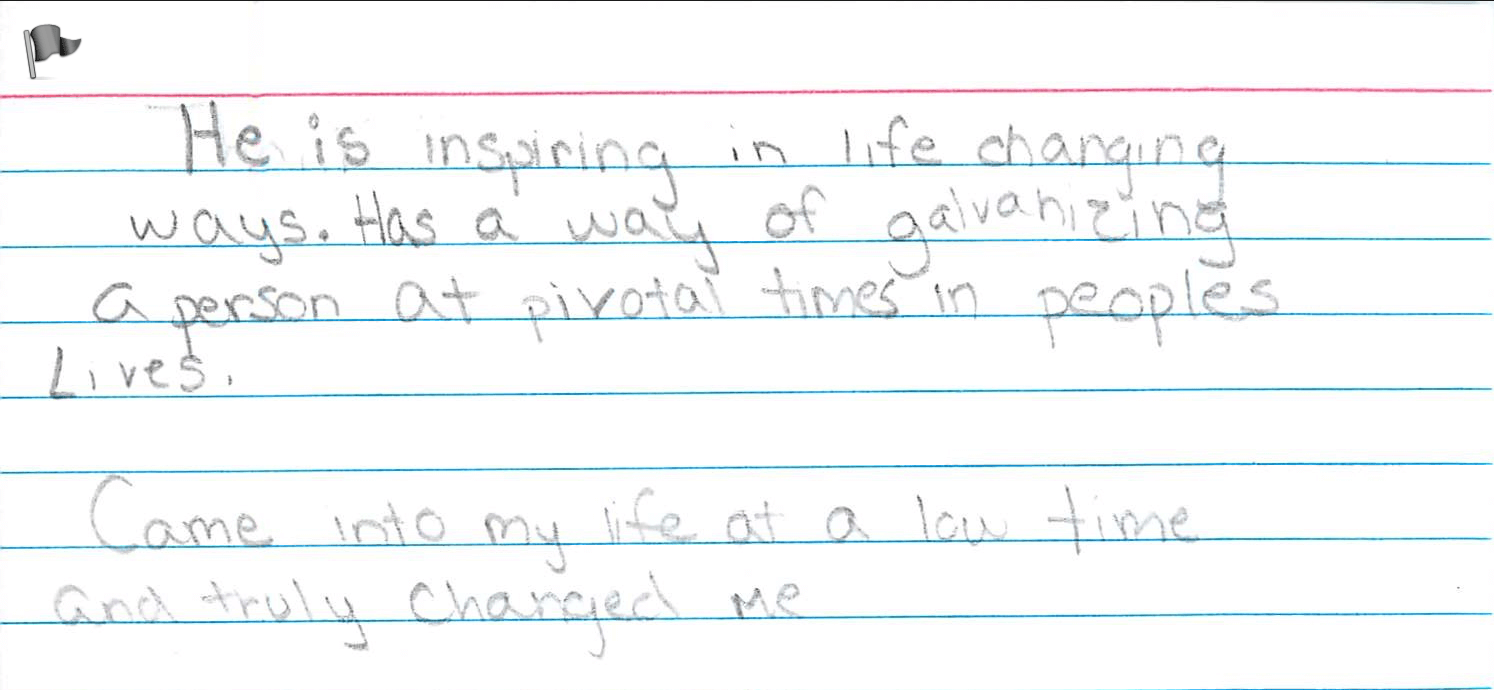 He is inspiring in life changing
ways. Has a way of galvanizing
a person at pivotal times in peoples
Lives.
Came into my life at a low time
and truly changed me